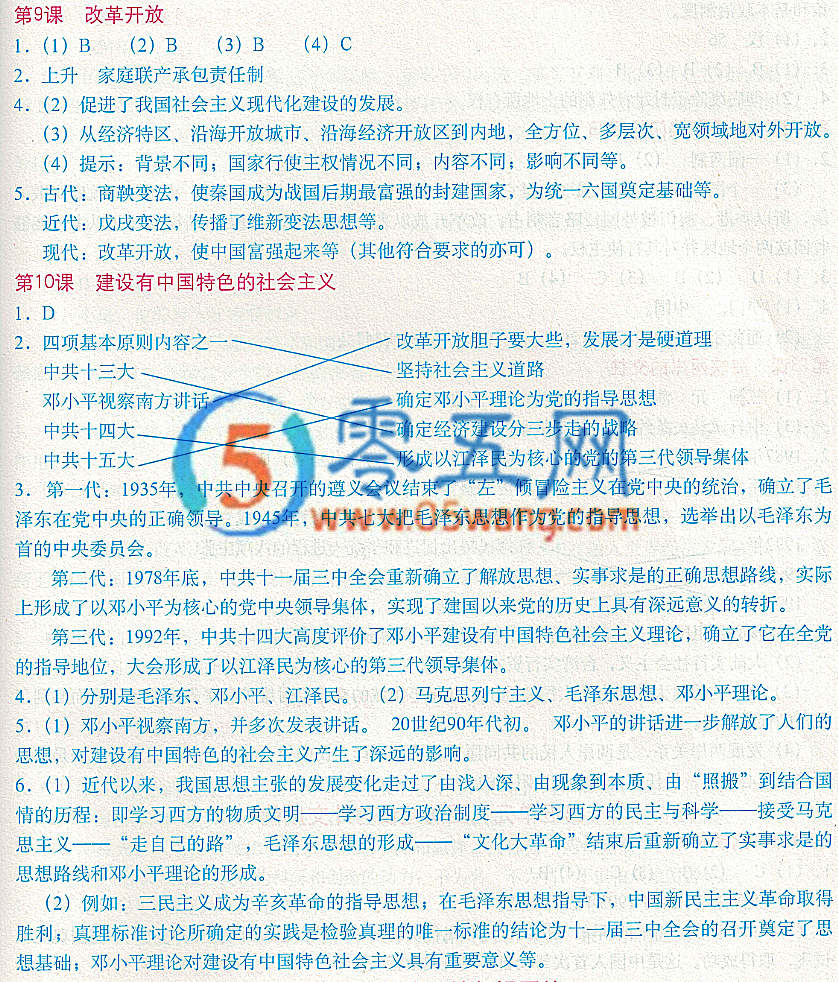 第9课 改革开放
1.（1）B （2）B （3）B （4）C
2. 上升 家庭联产承包责任制
4.（2）促进了我国社会主义现代化建设的发展。
（3）从经济特区、沿海开放城市、沿海经济开放区到内地，全方位、多层次、宽领域地对外开放。
（4）提示：背景不同；国家行使主权情况不同；内容不同；影响不同等。
5. 古代：商鞅变法，使秦国成为战国后期最富强的封建国家，为统一六国奠定基础等。
近代：戊戌变法，传播了维新变法思想等。
现代：改革开放，使中国富强起来等（其他符合要求的亦可）。
第10课 建设有中国特色的社会主义
1. D
2. 四项基本原则内容之一 改革开放胆子要大些，发展才是硬道理
中共十三大 坚持社会主义道路
邓小平视察南方讲话 确定邓小平理论为党的指导思想
中共十四大 确定经济建设分三步走的战略
中共十五大 形成以江泽民为核心的党的第三代领导集体
3. 第一代：1935年，中共中央召开的遵义会议结束了“左”倾冒险主义在党中央的统治，确立了毛
泽东在党中央的正确领导。1945年，中共七大把毛泽东思想作为党的指导思想，选举出以毛泽东为
首的中央委员会。
第二代：1978年底，中共十一届三中全会重新确立了解放思想、实事求是的正确思想路线，实际
上形成了以邓小平为核心的党中央领导集体，实现了建国以来党的历史上具有深远意义的转折。
第三代：1992年，中共十四大高度评价了邓小平建设有中国特色社会主义理论，确立了它在全党
的指导地位，大会形成了以江泽民为核心的第三代领导集体。
4.（1）分别是毛泽东、邓小平、江泽民。（2）马克思列宁主义、毛泽东思想、邓小平理论。
5.（1）邓小平视察南方，并多次发表讲话。 20世纪90年代初。 邓小平的讲话进一步解放了人们的
思想，对建设有中国特色的社会主义产生了深远的影响。
6.（1）近代以来，我国思想主张的发展变化走过了由浅入深、由现象到本质、由“照搬”到结合国
情的历程：即学习西方的物质文明——学习西方政治制度——学习西方的民主与科学——接受马克
思主义——“走自己的路”，毛泽东思想的形成——“文化大革命”结束后重新确立了实事求是的
思想路线和邓小平理论的形成。
（2）例如：三民主义成为辛亥革命的指导思想；在毛泽东思想指导下，中国新民主主义革命取得
胜利；真理标准讨论所确定的实践是检验真理的唯一标准的结论为十一届三中全会的召开奠定了思
想基础；邓小平理论对建设有中国特色社会主义具有重要意义等。
5 零五网
www.05wang.com